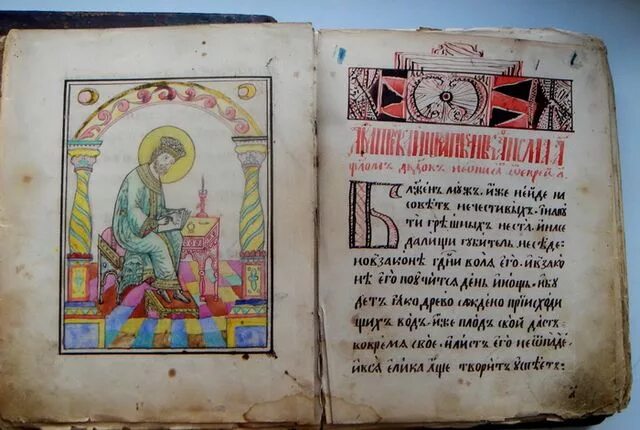 Блженъ мужъ. иже нейде на
совѣтъ нечестивыхъ. инапу
ти грѣшныхъ неста. инасе
далищи губитель неседе.
новзаконе гдни воля его. ивзако
нѣ его поучится день инощь. ибу
детъ яко древо саждено приисходи
щихъ водъ. иже плодъ свой дастъ
вовремя свое. илистъ его неѿпаде.
ився елика аще творитъ успѣетъ.